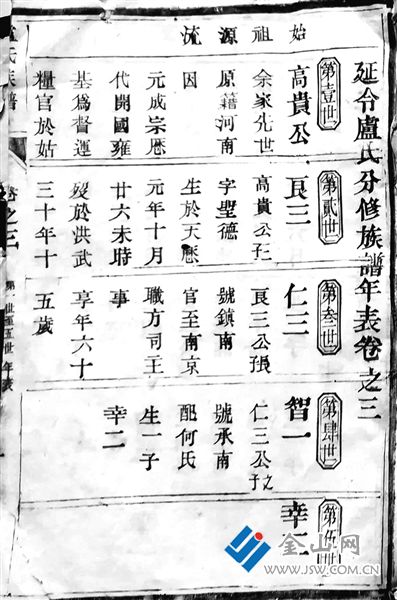 延令盧氏分修族譜年表卷之三
始祖源流
第壹世
高貴公
余家先世
原籍河南
因
元成宗歷
代開國雍
基爲督運
糧官於姑
第貳世
艮三
高貴公子
字聖德
生於天歷
元年十月
廿六未時
歿於洪武
三十年十
第叁世
仁三
艮三公長
號鎮南
官至南京
職方司王
事
享年六十
五歲
第肆世
智一
仁三公子之
號承南
配何氏
生一子
幸二
第伍世
幸二
氏族譜
卷之三
第一世至五世年表
金山网
WWW.JSW.COM.CN